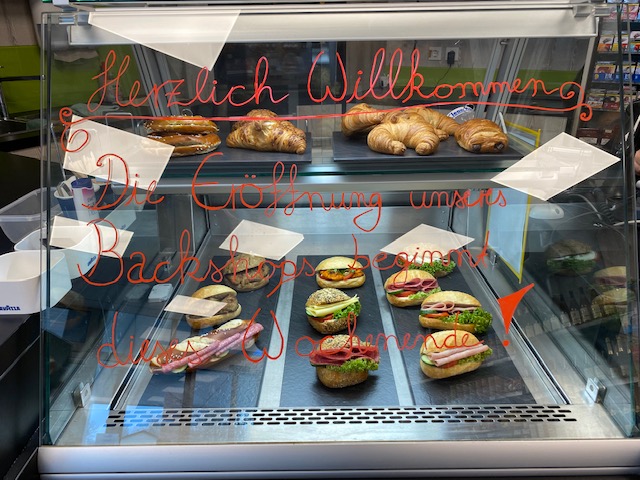 Herzlich Willkommen
Die Eröffnung unseres
Backshops beginnt
dieses Wochenende!